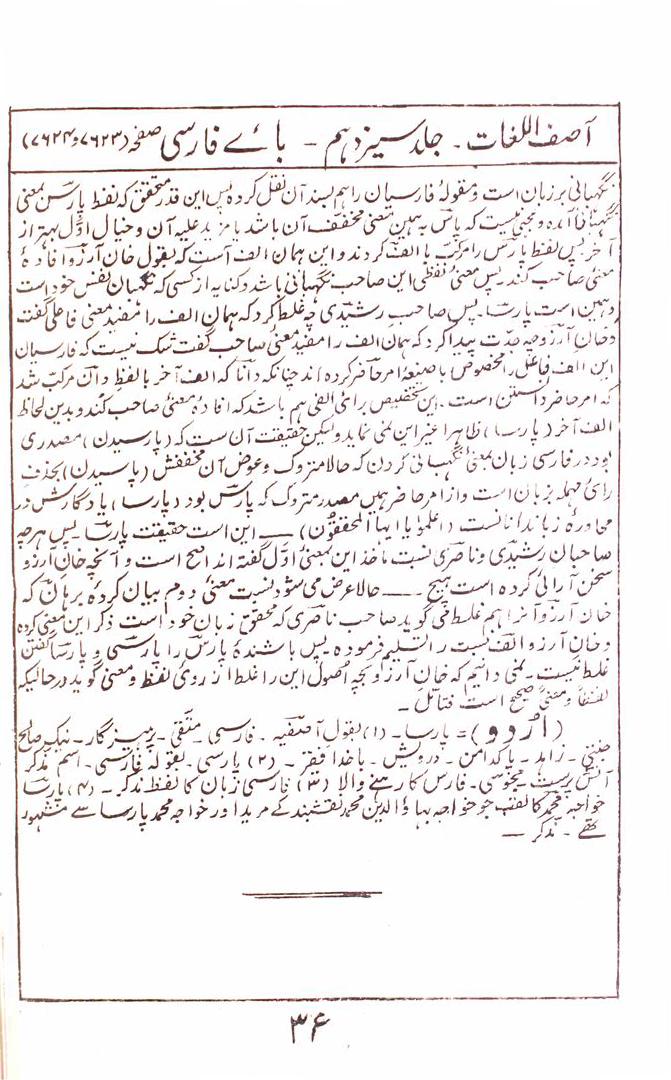 آصف اللغات ۔ جلد سیزدہم ۔ بائے فارسی صفحہ (۷۶۲۳ و ۷۶۲۴)
نگہبانی بر زبان است و مقولۂ فارسیان را ہم بسند آن نقل کردہ پس این قدر محقق کہ لفظ پارس بمعنی
نگہبانی آمدہ و عجبی نیست کہ پاس بہمین معنی مخفف آن باشد یا مزید علیہ آن و خیال اوّل بہتر از
آخر پس لفظ پارس را مرکب با الف کردند و این ہمان الف است کہ بقول خان آرزو افادۂ
معنی صاحب کند پس معنی لفظی این صاحب نگہبانی باشد و کنایہ از کسی کہ نگہبان نفس خود است
و ہمین است پارسا ۔ پس صاحب رشیدی چہ غلط کرد کہ ہمان الف را مفید معنی فاعلی گفت
و خان آرزو چہ جدت پیدا کرد کہ ہمان الف را مفید معنی صاحب گفت شک نیست کہ فارسیان
این الف فاعل را مخصوص با صیغۂ امر حاضر کردہ اند چنانکہ دانا کہ الف آخر با لفظ دان مرکب شد
کہ امر حاضر دانستن است ۔ این تخصیص برای الفی ہم باشد کہ افادۂ معنی صاحب کند و بدین لحاظ
الف آخر (پارسا) ظاہرا غیر این می نماید ولیکن حقیقت آن ست کہ (پارسیدن) مصدری
بود در فارسی زبان بمعنی نگہبانی کردن کہ حالا متروک و عوض آن مخففش (پاسیدن) بحذف
رای مہملہ بر زبان است و از امر حاضر ہمین مصدر متروک کہ پارس بود (پارسا) یادگارش در
محاورۂ زباندانانست (اعلموا یا ایہا المحققون) ــــ این است حقیقت پارسا پس ہرچہ
صاحبان رشیدی و ناصری نسبت ماخذ این بمعنی اوّل گفتہ اند اصح است و آنچہ خان آرزو
سخن آرائی کردہ است ہیچ ۔ ــــ حالا عرض می شود نسبت معنی دوم بیان کردۂ برہان کہ
خان آرزو آنرا ہم غلط می گوید صاحب ناصری کہ محقق زبان خود است ذکر این معنی کردہ
و خان آرزو الف نسبت را تسلیم فرمودہ پس باشندۂ پارس را پارسی و پارسا گفتن
غلط نیست ۔ نمی دانیم کہ خان آرزو بچہ اصول این را غلط از روی لفظ و معنی گوید در حالیکہ
لفظاً و معنیً صحیح است فتأمل ۔
(اُردو) = پارسا ۔ (۱) بقول آصفیہ ۔ فارسی ۔ متقی ۔ پرہیزگار ۔ نیک صالح
جتی ۔ زاہد ۔ پاکدامن ۔ درویش ۔ باخدا فقر ۔ (۲) پارسی ۔ بقولہ فارسی ۔ اسم مذکر
آتش پرست ۔ مجوسی ۔ فارس کا رہنے والا (۳) فارسی زبان کا لفظ مذکر ۔ (۴) پارسا
خواجہ محمد کا لقب جو خواجہ بہاؤالدین محمد نقشبند کے مرید اور خواجہ محمد پارسا سے مشہور
تھے ۔ مذکر ــــ
۳۶